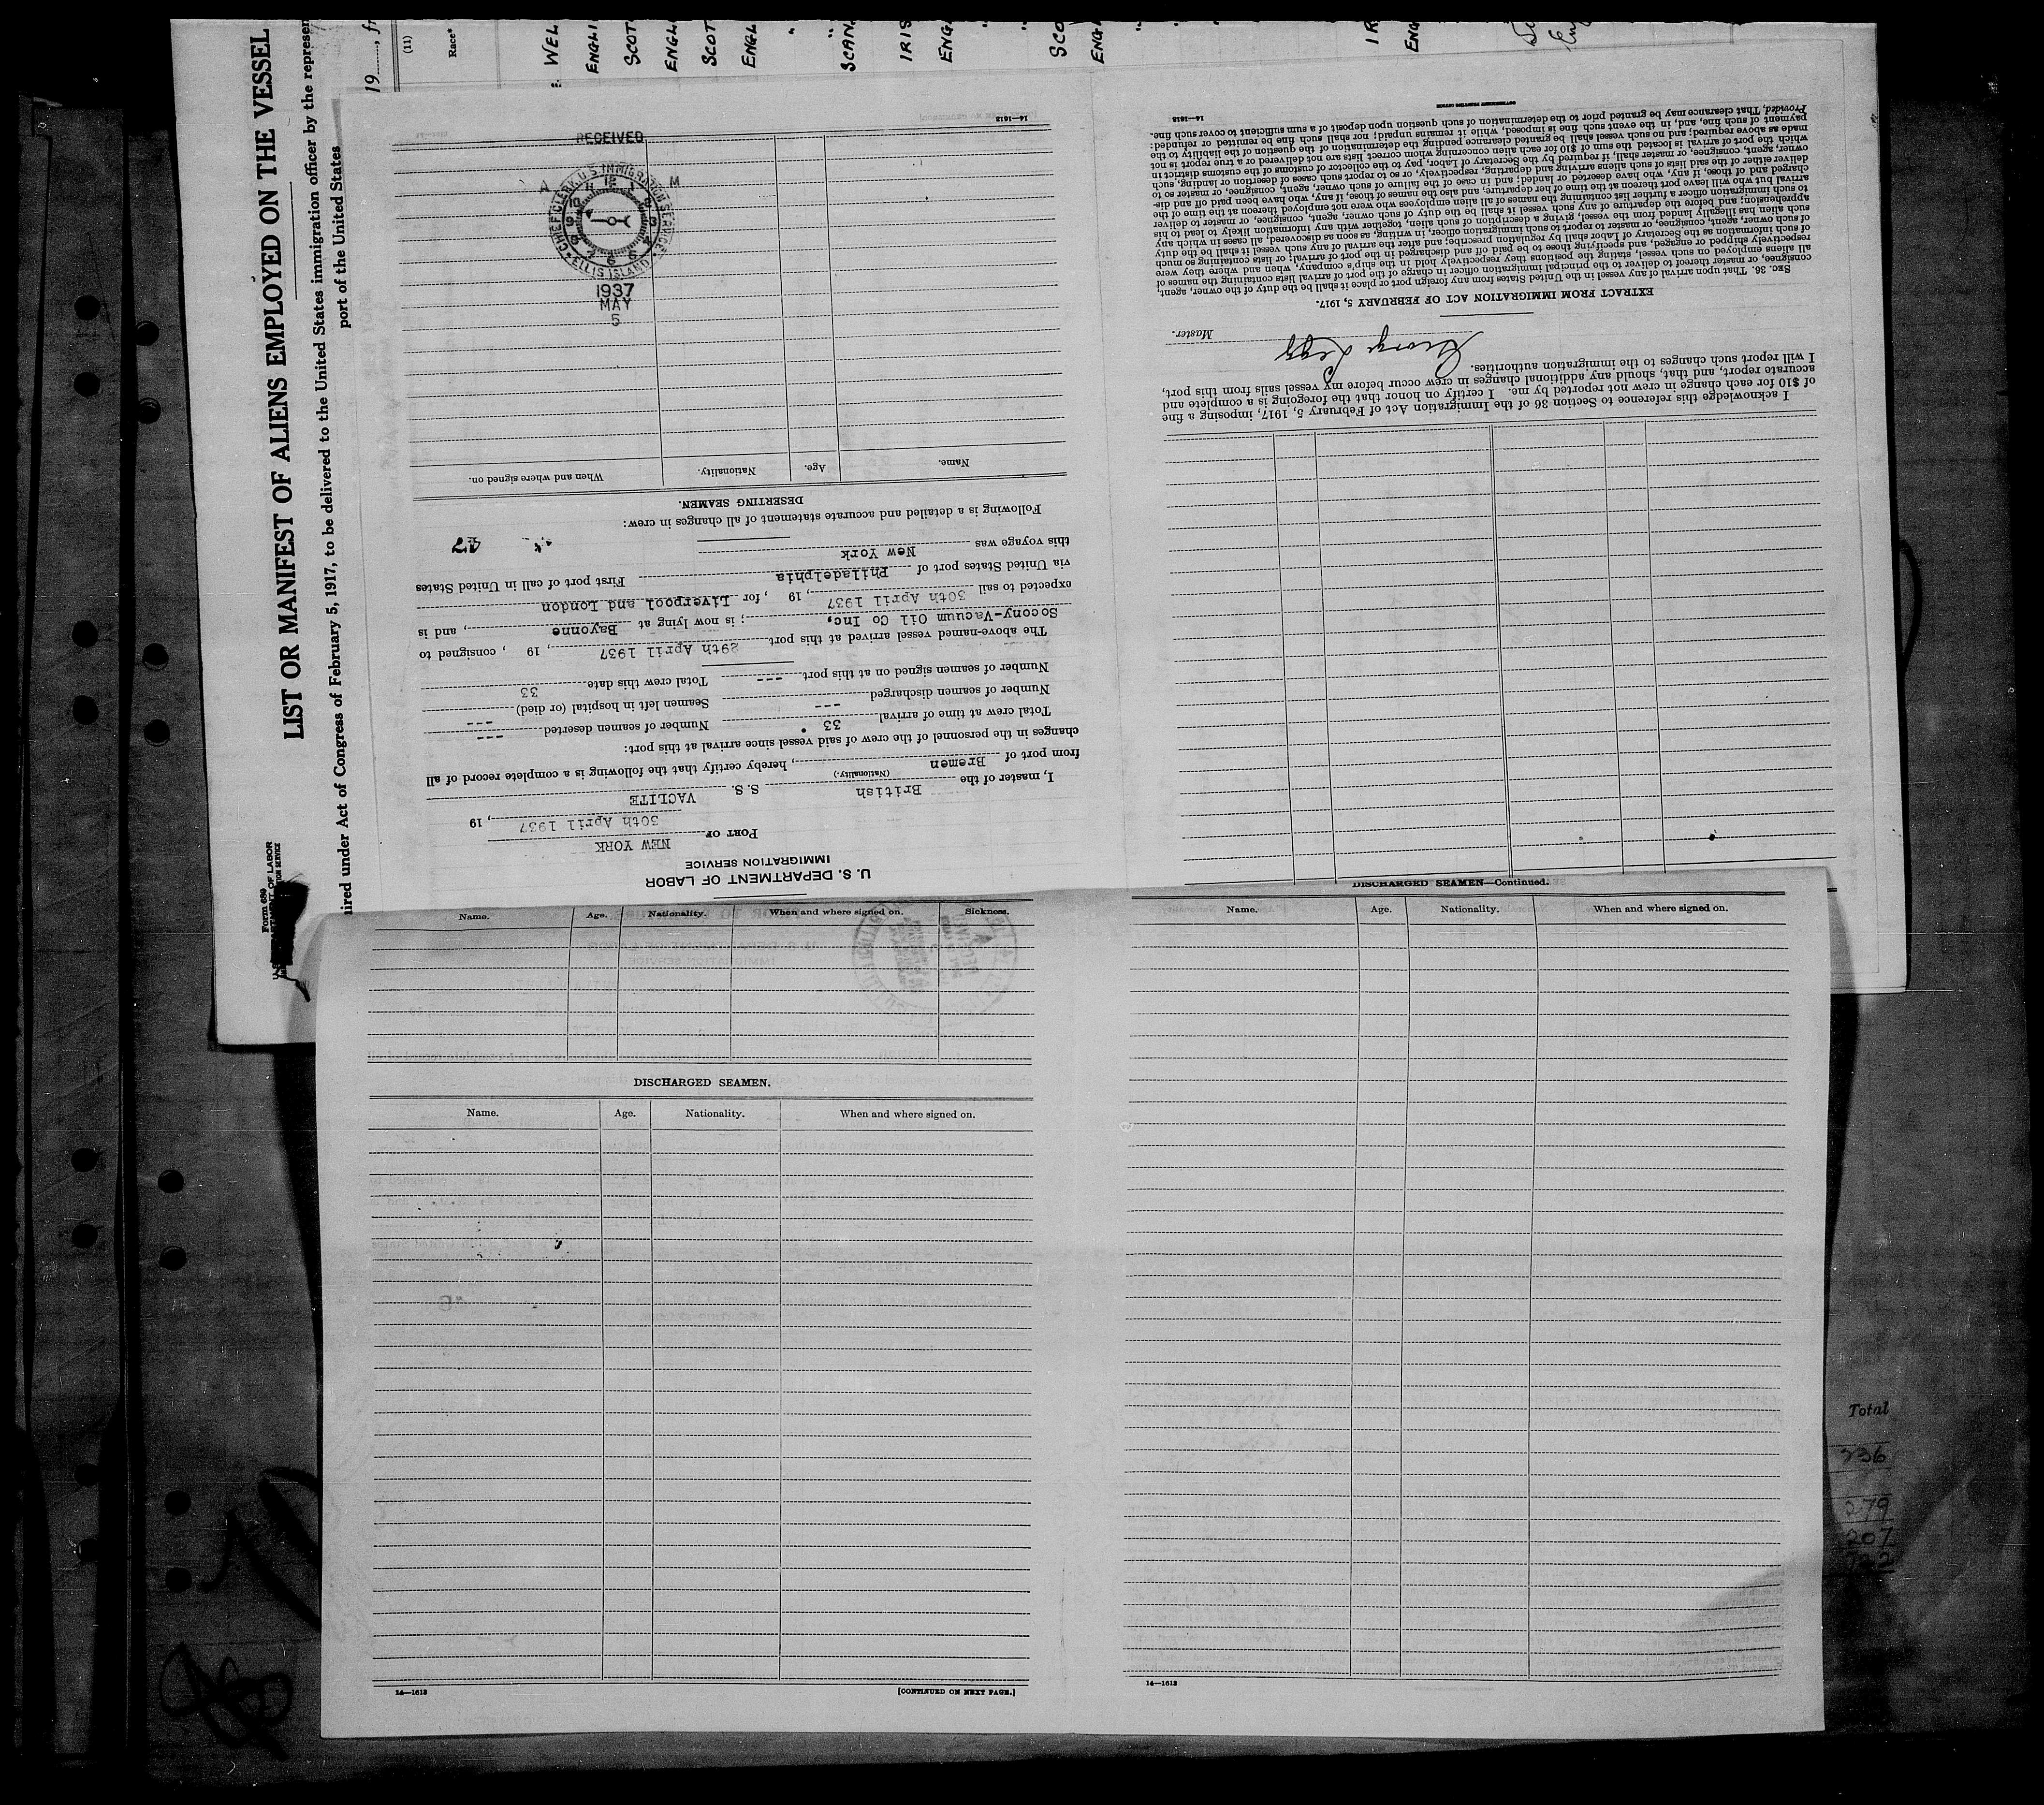 LIST OR MANIFEST OF ALIENS EMPLOYED ON THE VESSEL
ired under Act of Congress of February 5, 1917, to be delivered to the United States immigration officer by the represen
port of the United States
Form 680
19
(11)
Race*
WEL
ENGLI
SCOT
ENGL
SCOT
ENGL
"
"
SCAN
IRIS
ENG
"
"
SCO
ENG
"
IR
ENG
U. S. DEPARTMENT OF LABOR
IMMIGRATION SERVICE
PORT OF NEW YORK
30th April 1937, 19
I, master of the British S.S. VACLITE
(Nationality.)
from port of Bremen, hereby certify that the following is a complete record of all
changes in the personnel of the crew of said vessel since arrival at this port:
Total crew at time of arrival 33 Number of seamen deserted ---
Number of seamen discharged --- Seamen left in hospital (or died) ---
Number of seamen signed on at this port --- Total crew this date 33
The above-named vessel arrived at this port 29th April 1937, 19 , consigned to
Socony-Vacuum Oil Co Inc, ; is now lying at Bayonne, and is
expected to sail 30th April 1937, 19 , for Liverpool and London
via United States port of Philadelphia First port of call in United States
this voyage was New York
47
Following is a detailed and accurate statement of all changes in crew:
DESERTING SEAMEN.
Name. Age. Nationality. When and where signed on.
14—1613
RECEIVED
A M
CHIEF CLERK U.S. IMMIGRATION SERVICE
ELLIS ISLAND
1937
MAY
5
I acknowledge this reference to Section 36 of the Immigration Act of February 5, 1917, imposing a fine
of $10 for each change in crew not reported by me. I certify on honor that the foregoing is a complete and
accurate report, and that, should any additional changes in crew occur before my vessel sails from this port,
I will report such changes to the immigration authorities.
George Legg
Master.
EXTRACT FROM IMMIGRATION ACT OF FEBRUARY 5, 1917.
SEC. 36. That upon arrival of any vessel in the United States from any foreign port or place it shall be the duty of the owner, agent,
consignee, or master thereof to deliver to the principal immigration officer in charge of the port of arrival lists containing the names of
all aliens employed on such vessel, stating the positions they respectively hold in the ship's company, when and where they were
respectively shipped or engaged, and specifying those to be paid off and discharged in the port of arrival; or lists containing so much
of such information as the Secretary of Labor shall by regulation prescribe; and after the arrival of any such vessel it shall be the duty
of such owner, agent, consignee, or master to report to such immigration officer, in writing, as soon as discovered, all cases in which any
such alien has illegally landed from the vessel, giving a description of such alien, together with any information likely to lead to his
apprehension; and before the departure of any such vessel it shall be the duty of such owner, agent, consignee, or master to deliver
to such immigration officer a further list containing the names of all alien employees who were not employed thereon at the time of the
arrival but who will leave port thereon at the time of her departure, and also the names of those, if any, who have been paid off and dis-
charged and of those, if any, who have deserted or landed; and in case of the failure of such owner, agent, consignee, or master so to
deliver either of the said lists of such aliens arriving and departing, respectively, or so to report such cases of desertion or landing, such
owner, agent, consignee, or master, shall, if required by the Secretary of Labor, pay to the collector of customs of the customs district in
which the port of arrival is located the sum of $10 for each alien concerning whom correct lists are not delivered or a true report is not
made as above required; and no such vessel shall be granted clearance pending the determination of the question of the liability to the
payment of such fine, and, in the event such fine is imposed, while it remains unpaid; nor shall such fine be remitted or refunded:
Provided, That clearance may be granted prior to the determination of such question upon deposit of a sum sufficient to cover such fine.
14—1613
Name. Age. Nationality. When and where signed on. Sickness.
DISCHARGED SEAMEN.
Name. Age. Nationality. When and where signed on.
14—1613 [CONTINUED ON NEXT PAGE.]
DISCHARGED SEAMEN—Continued.
Name. Age. Nationality. When and where signed on.
14—1613
Total
236
279
207
722